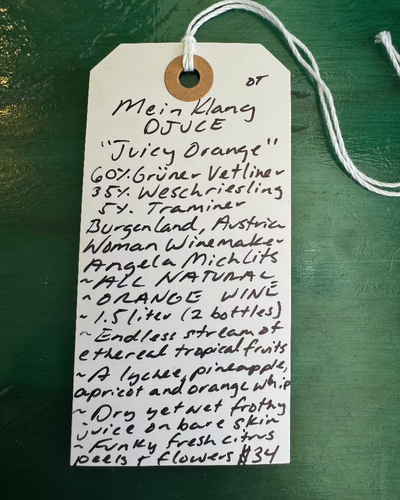 DT
Mein Klang
OJUCE
"Juicy Orange"
60% Grüner Vetliner
35% Weschriesling
5% Traminer
Burgenland, Austria
Woman Winemaker
Angela Michlits
~ALL NATURAL
~ORANGE WINE
~1.5 liter (2 bottles)
~Endless stream of
ethereal tropical fruits
~A lychee, pineapple,
apricot and orange whip
~Dry yet wet frothy
juice on bare skin
~Funky fresh citrus
peels & flowers $34